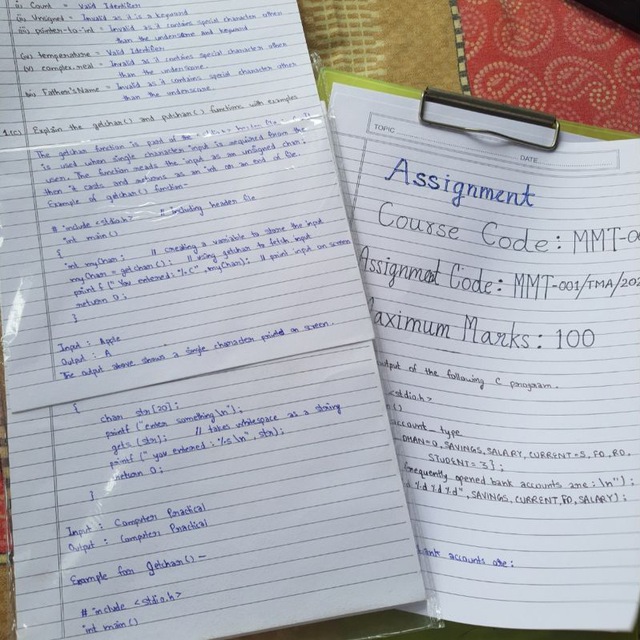 ii) Count = Valid Identifier
iii) Unsigned = Invalid as it is a keyword
iii) pointer-to-int = Invalid as it contains special character other
than the underscore and keyword
(iv) temperature = Valid Identifier
(v) complex.real = Invalid as it contains special character other
than the underscore.
(vi) Father's Name = Invalid as it contains special character other
than the underscore.
1.(c) Explain the getchar() and putchar() functions with examples
The getchar function is part of the <stdio.h>
is used when single character input is required from the
user. The function reads the input as an unsigned char;
then it casts and returns as an int or an end of file.
Example of getchar() function -
# include <stdio.h> // including header file
int main()
{
int myChar; // creating a variable to store the input
myChar = getchar(); // using getchar to fetch input
printf ("You entered: %c", myChar); // print input on screen
return 0;
}
Input : Apple
Output : A
The output above shows a single character printed on screen.
{
char str[20];
printf ("enter something\n");
gets (str); // takes whitespace as a string
printf ("you entered : %s\n", str);
return 0;
}
Input : Computer Practical
Output : Computer Practical
Example for getchar() -
# include <stdio.h>
int main()
TOPIC
DATE
Assignment
Course Code: MMT-00
Assignment Code: MMT-001/TMA/202
Maximum Marks: 100
output of the following C program.
<stdio.h>
()
account_type
=0, SAVINGS, SALARY, CURRENT=5, FD, RD,
STUDENT = 3};
frequently opened bank accounts are : \n");
d %d %d %d", SAVINGS, CURRENT, FD, SALARY);
bank accounts are: